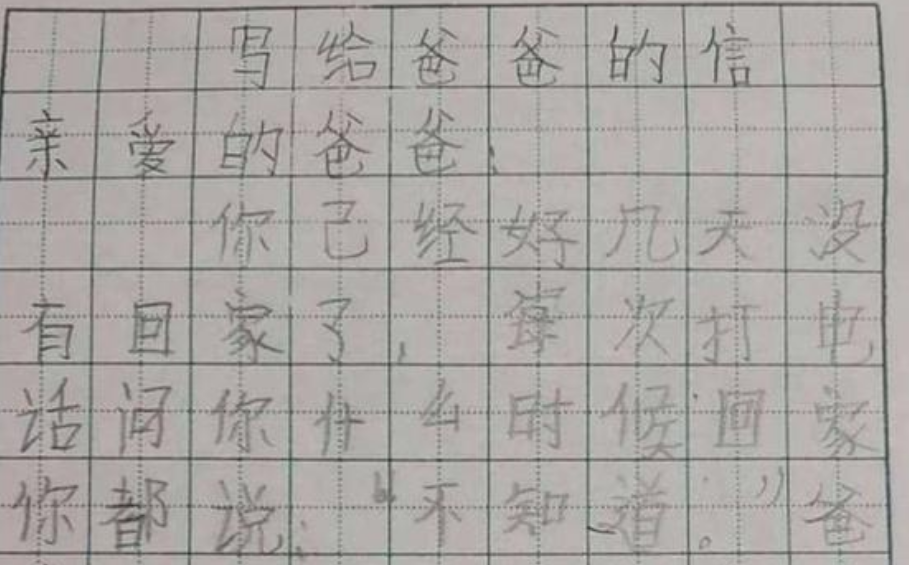 写给爸爸的信
亲爱的爸爸：
你已经好几天没
有回家了，每次打电
话问你什么时候回家
你都说：“不知道。”爸